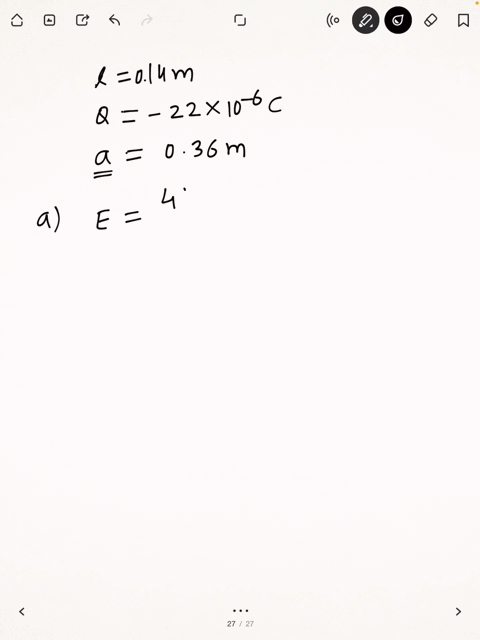 l = 0.14 m
Q = - 22 × 10⁻⁶ C
a = 0.36 m
a) E = 4
27 / 27